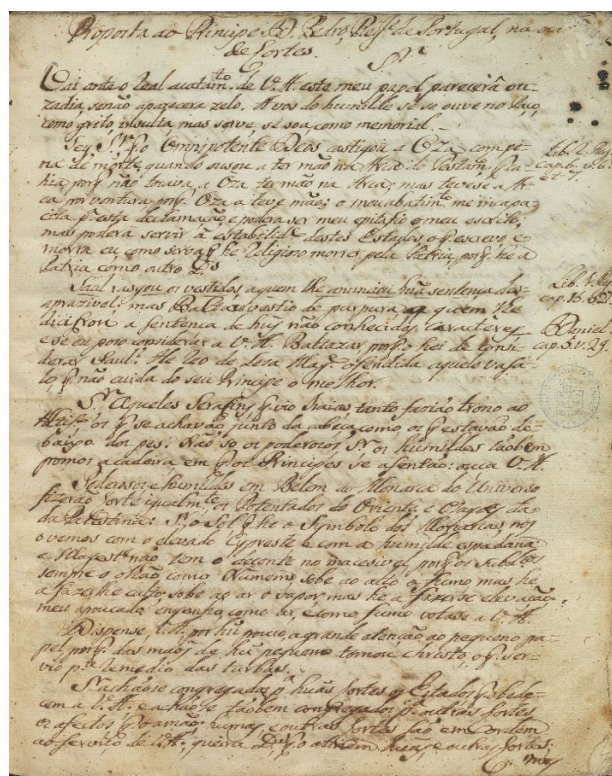 Proposta ao Principe D. Pedro, Reg.te de Portugal, na
de Cortes.
Sr.
Cai ante o Real acatam.to de V. A. este meu papel, parecerá ou-
zadia, senão aparecera zelo. A vos do humilde se se ouve no Paço,
como grito, insulta mas serve, se soa como memorial.
Sey Sr. q̃ o Omnipotente Deos castigou a Oza com pe-
na de morte, quando ousou a ter mão na Arca do
porq̃ não tocava a Oza ter mão na Arca; mas
Oza a teve mão; o meu abatim.to me incapa-
cita p.a este declamação, e poderá ser meu epitafio o meu escrito,
mas poderá servir á estabelid.e destes Estados, o q̃ escrevo, e
morra eu como sirva q̃ he Religioso morrer pela Patria, porq̃ he a
Patria como outro D.s
Saul rasgou os vestidos, a quem lhe anunciou hũa sentença des-
aprazivel: mas Baltazar vestio de purpura a quem lhe
dicifrou a sentença de hũs não conhecidos caracteres
e se eu poso considerar a V. A. Baltazar, porq̃ o hei de consi-
derar Saul? He Reo de Lesa Mag.e ofendida aquele vasa-
lo q̃ não cuida do seu Principe o melhor.
Sr. Aqueles Serafins q̃ vio Isaias, tanto fazião trono ao
Altis.o os q̃ se achavão junto da cabeça como os q̃ estavão de-
baixo dos pes: Não so os poderozos Sr. os humildes tãobem
somos a cadeira em q̃ os Principes se asentão: ouça V. A.
Poderosos e humildes em Belem ao Monarca do Universo
fizerão Corte igualm.te os Potentados do Oriente, e
da Palestina: Sr. o Sol q̃ he o Symbolo dos Monarcas, nos
o vemos com o elevado Cypreste, e com a humilde espadana
e Magest.e não tem o acente no macesivel, porq̃ os subditos
sempre o olhão como Numem, sobe ao alto o fumo mas he
a fazer he culto, sobe ao ar o vapor mas he a fazerse elevação.
meu apoucado engenho, como como fumo votase a V. A.
Dispense, V. A. por hũ pouco, a grande atenção ao pequeno pa-
pel porq̃ das mãos de hũ pequeno tomou Christo, o q̃ ser-
vio p.a Remedio das turbas.
Sachãose congregados p.a hũas Cortes os Estados q̃ obede-
cem a V. A. e achãose tãobem congregados p.a outras Cortes
os afectos q̃ o amão humas, e outras Cortes são em Ordem
ao serviso de V. A. queira D.s q̃ o acertem humas, e outras Cortes:
Lib. 2. Reg.
cap. 6. v. 6.
et 7.
Lib. 1. Reg.
cap. 15.
Daniel
cap. 5. v. 29.